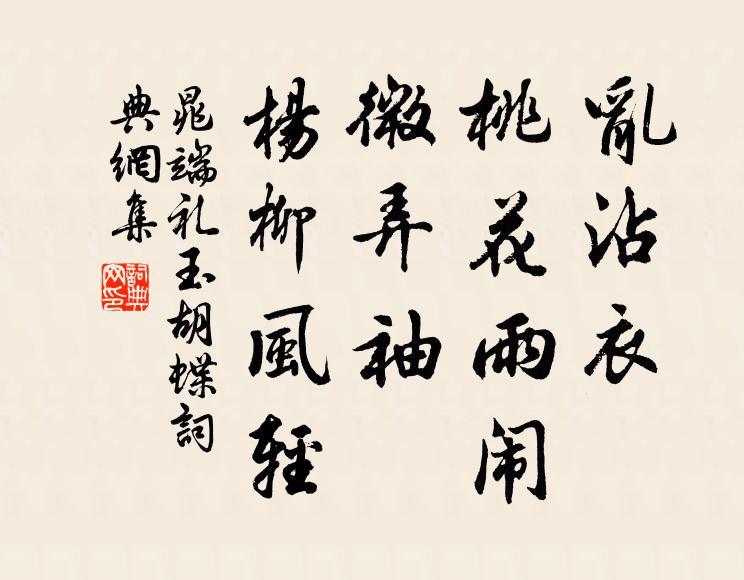 亂沾衣
桃花雨闹
微弄袖
楊柳風輕
晁端礼玉胡蝶詞
典網集
詞典網印